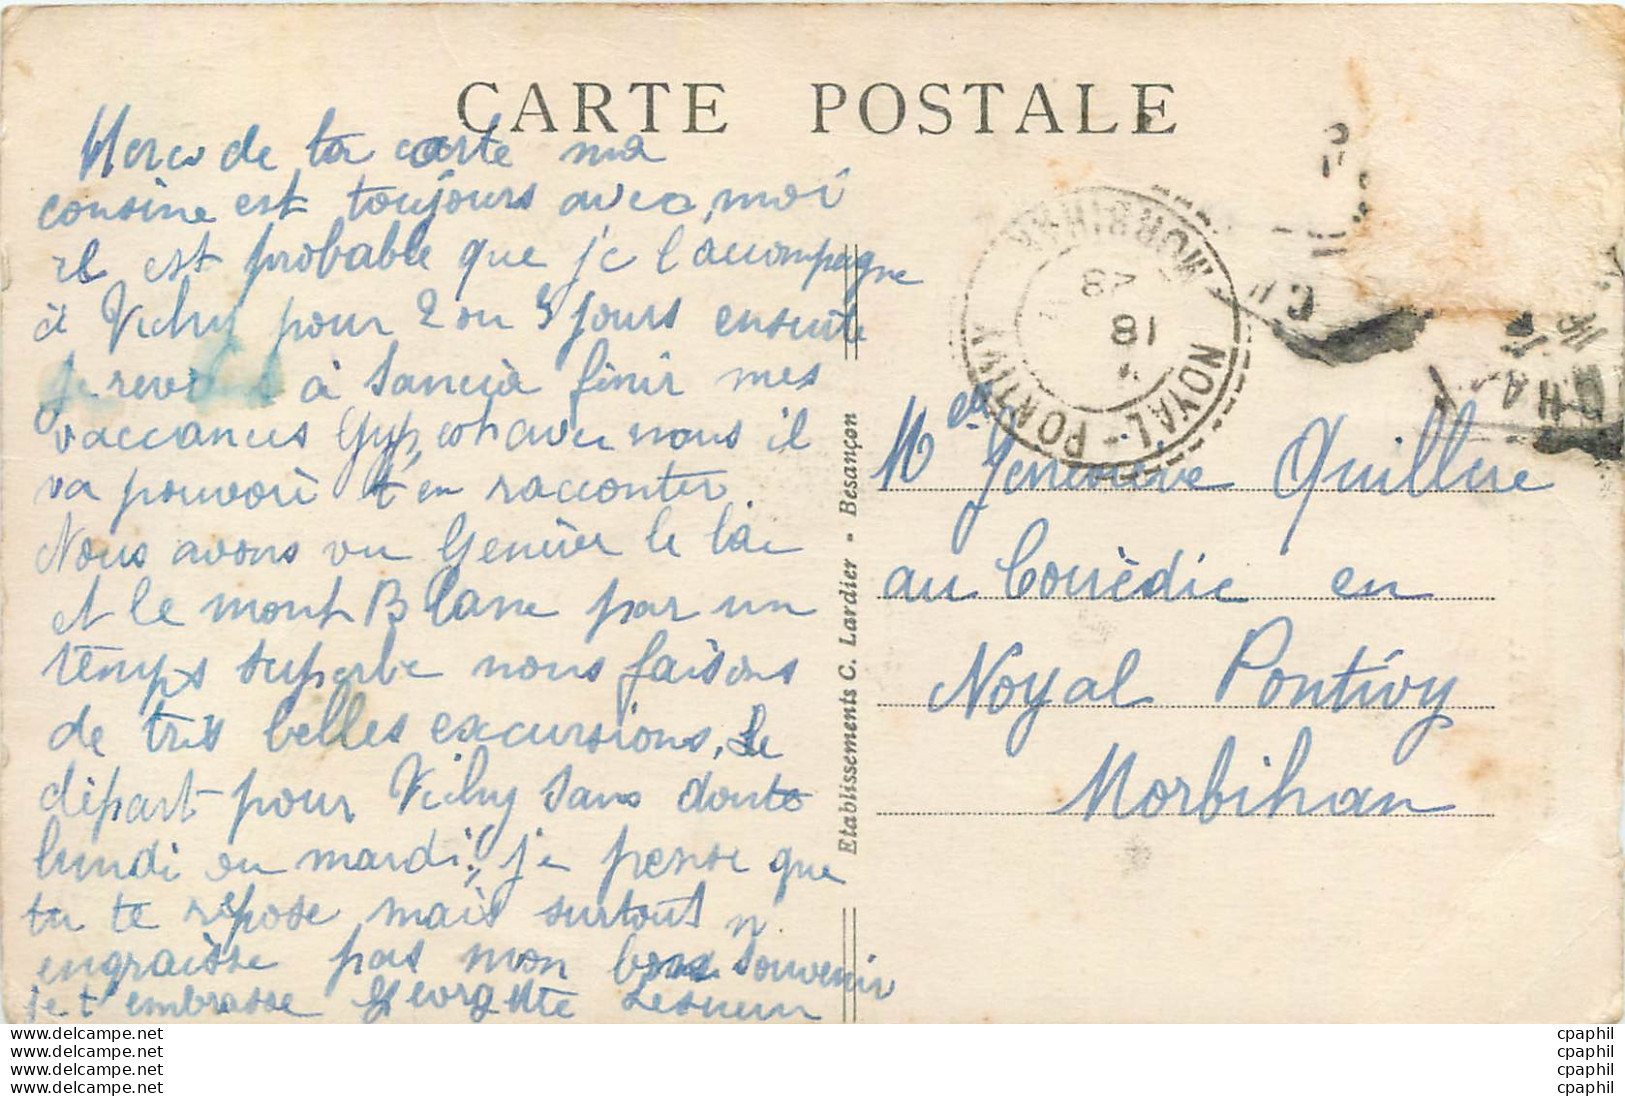 CARTE POSTALE
Merci de ta carte ma
cousine est toujours avec moi
il est probable que je l'accompagne
à Vichy pour 2 ou 3 jours ensuite
je reviens à Sancia finir mes
vaccances Gyp est avec nous il
va pouvoir t'en racconter.
Nous avons vu Genève le lac
et le mont Blanc par un
temps superbe nous faisons
de très belles excursions, Le
départ pour Vichy sans doute
lundi ou mardi, je pense que
tu te repose mais surtout n
engraisse pas mon bon souvenir
je t embrasse Georgette Lesueur
Etablissements C. Lardier - Besançon
NOYAL-PONTIVY MORBIHAN
18
Melle Geneviève Quillere
au Couëdic en
Noyal Pontivy
Morbihan
www.delcampe.net
www.delcampe.net
www.delcampe.net
www.delcampe.net
cpaphil
cpaphil
cpaphil
cpaphil